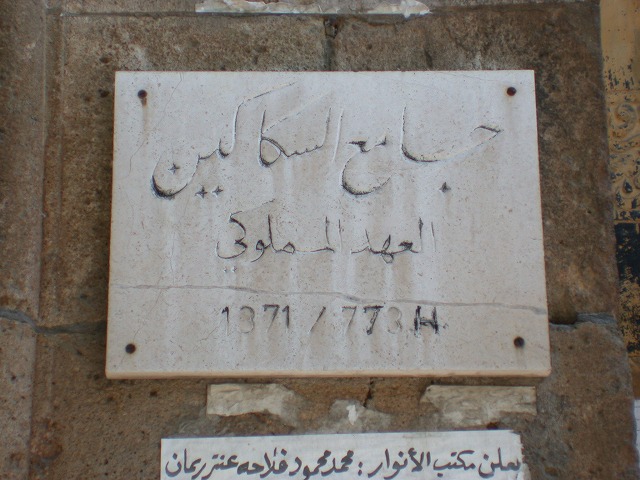 جامع السكاكين
العهد المملوكي
1371 / 773H
يعلن مكتب الأنوار : محمد محمود فلاحه